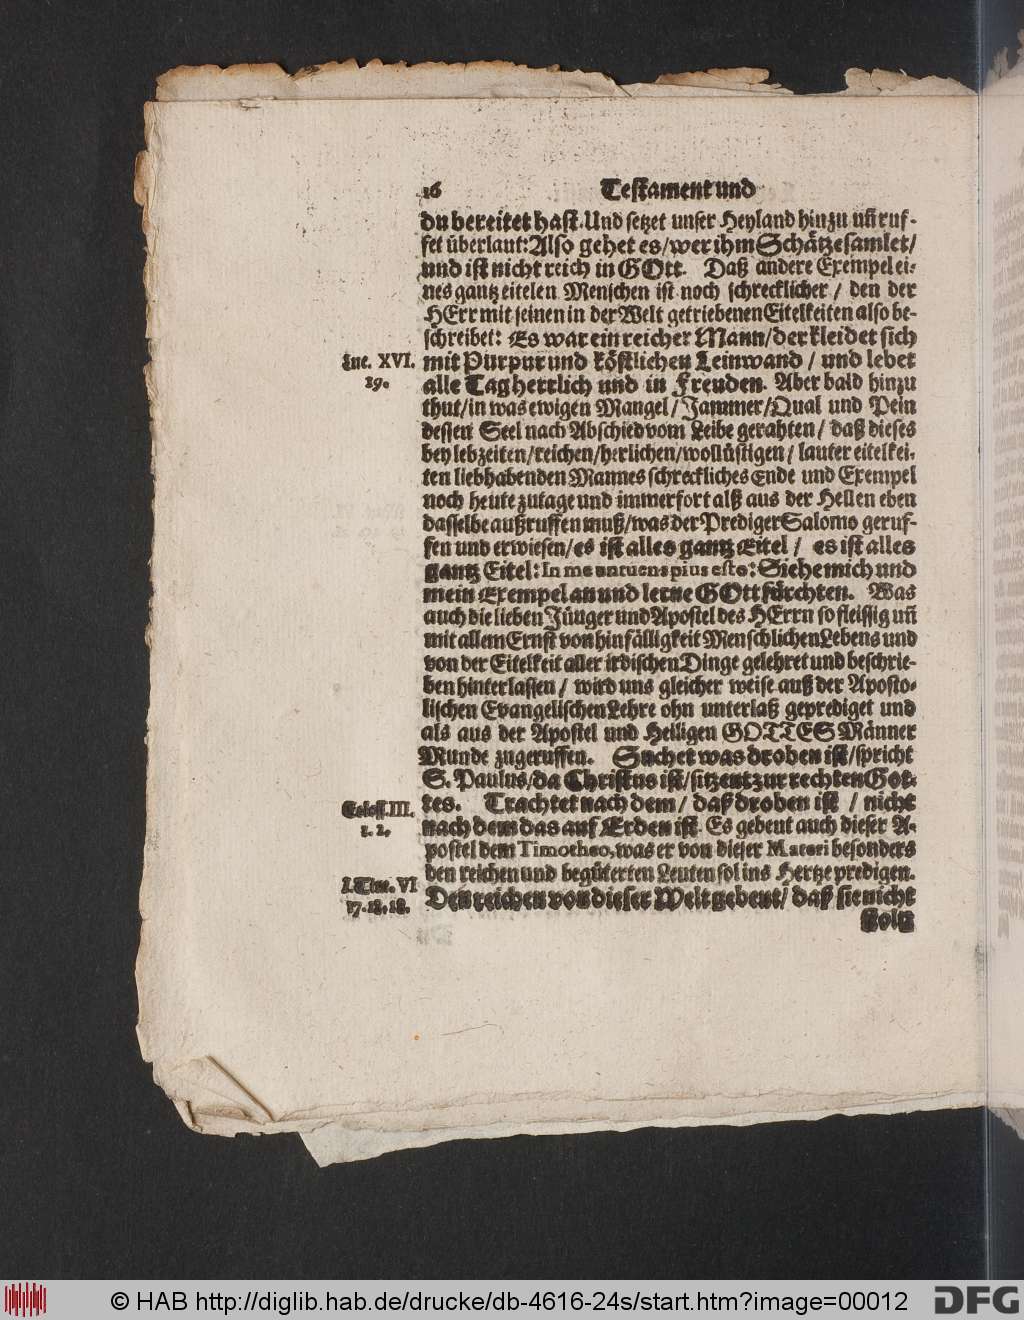 16 Testament und
du bereitet hast. Und setzet unser Heyland hinzu uñ ruf-
fet überlaut: Also gehet es/ wer ihm Schätze samlet/
und ist nicht reich in GOtt. Daß andere Exempel ei-
nes gantz eitelen Menschen ist noch schrecklicher / den der
HErr mit seinen in der Welt getriebenen Eitelkeiten also be-
schreibet: Es war ein reicher Mann/ der kleidet sich
Luc. XVI. mit Purpur und köstlichen Leinwand / und lebet
19. alle Tag herrlich und in Freuden. Aber bald hinzu
thut/ in was ewigen Mangel/ Jammer/ Qual und Pein
dessen Seel nach Abschied vom Leibe gerahten/ daß dieses
bey lebzeiten/ reichen/ herlichen/ wollüstigen/ lauter eitelkei-
ten liebhabenden Mannes schreckliches Ende und Exempel
noch heute zutage und immerfort alß aus der Hellen eben
dasselbe außruffen muß/ was der Prediger Salomo geruf-
fen und erwiesen/ es ist alles gantz Eitel / es ist alles
gantz Eitel: In me intuens pius esto: Siehe mich und
mein Exempel an und lerne GOtt fürchten. Was
auch die lieben Jünger und Apostel des HErrn so fleissig uñ
mit allem Ernst von hinfälligkeit Menschlichen Lebens und
von der Eitelkeit aller irdischen Dinge gelehret und beschrie-
ben hinterlassen/ wird uns gleicher weise auß der Aposto-
lischen Evangelischen Lehre ohn unterlaß geprediget und
als aus der Apostel und Heiligen GOTTES Männer
Munde zugeruffen. Suchet was droben ist/ spricht
S. Paulus/ da Christus ist/ sitzent zur rechten Got-
Coloss. III. tes. Trachtet nach dem/ daß droben ist / nicht
1. 2. nach dem das auf Erden ist. Es gebeut auch dieser A-
postel dem Timotheo, was er von dieser Materi besonders
den reichen und begüterten Leuten sol ins Hertze predigen.
I. Tim. VI Den reichen von dieser Welt gebeut/ daß sie nicht
17. 18. 18.
stoltz
© HAB http://diglib.hab.de/drucke/db-4616-24s/start.htm?image=00012
DFG